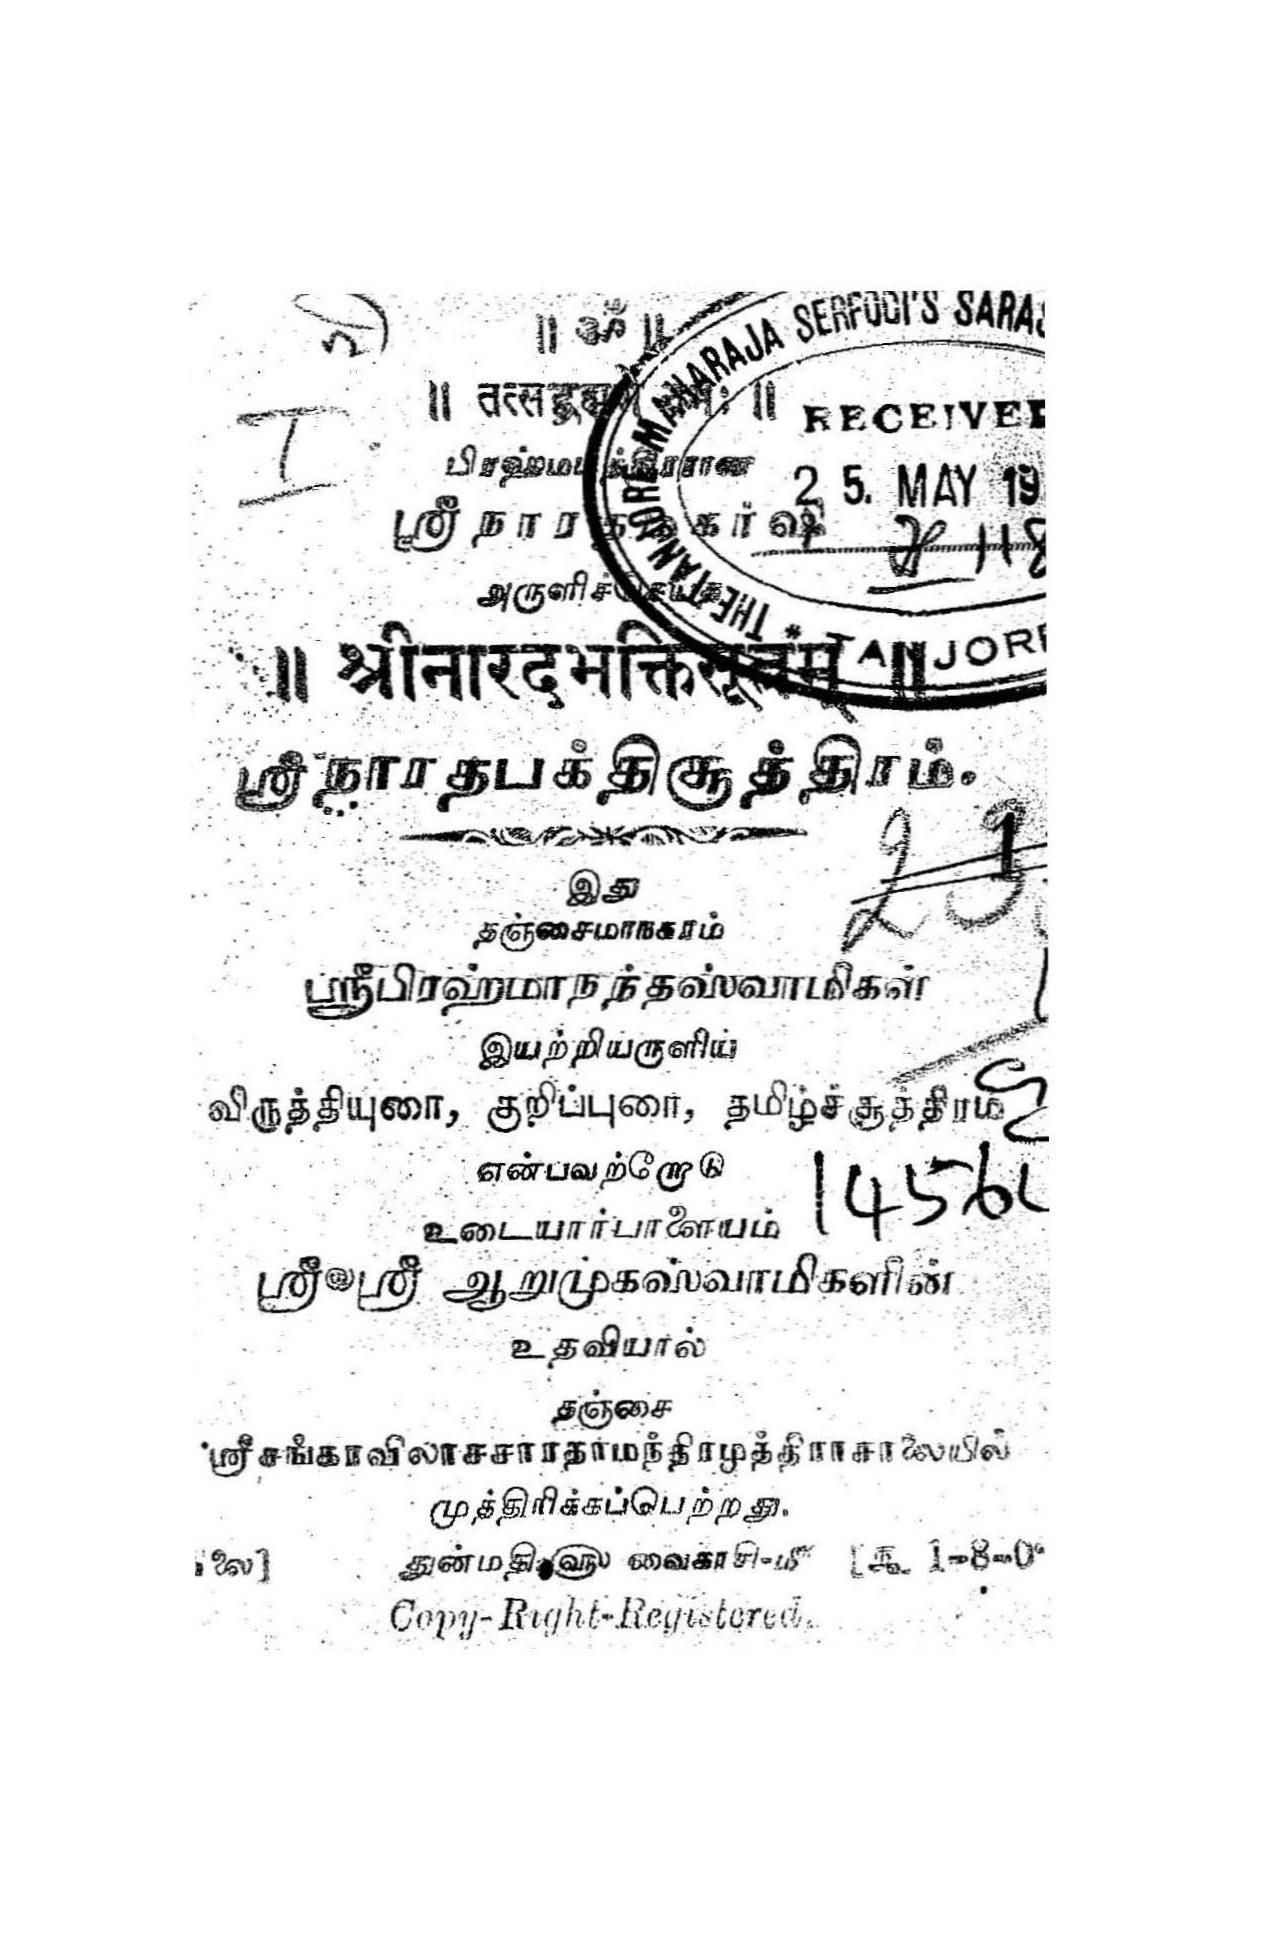 ॥ ॐ ॥
பிரஹ்மபுத்திரரான
ஸ்ரீ நாரத
அருளிச்செய்த
॥ श्रीनारदभक्तिसूत्रम् ॥
ஸ்ரீநாரதபக்திசூத்திரம்.
இது
தஞ்சைமாநகரம்
ஸ்ரீபிரஹ்மாநந்தஸ்வாமிகள்
இயற்றியருளிய
விருத்தியுரை, குறிப்புரை, தமிழ்ச்சூத்திரம்
என்பவற்றோடு
உடையார்பாளையம்
ஸ்ரீலஸ்ரீ ஆறுமுகஸ்வாமிகளின்
உதவியால்
தஞ்சை
ஸ்ரீசங்கரவிலாசசாரதாமந்திரஅழத்திராசாலையில்
முத்திரிக்கப்பெற்றது.
லை] துன்மதி௵ வைகாசி-௴ [ரூ 1-8-0
Copy-Right-Registered.
THE TANJORE MAHARAJA SERFOJI'S
RECEIVED
25. MAY 19
TANJORE